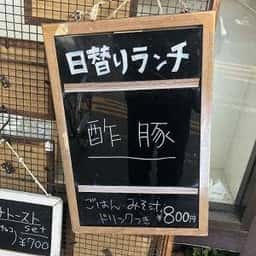 日替りランチ
酢豚
ごはん・みそ汁
ドリンクつき ¥800円
トースト
set
¥700